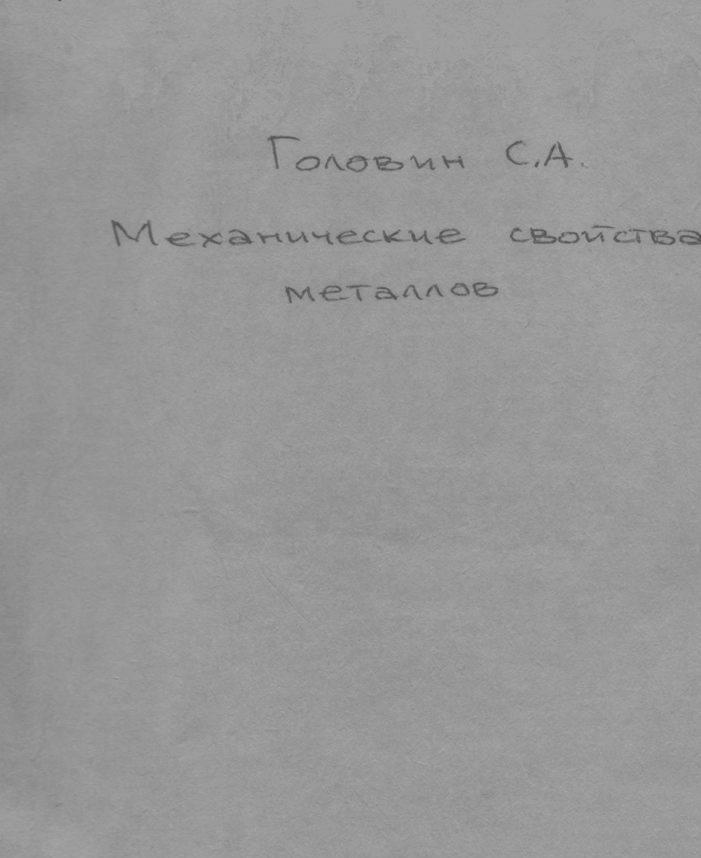 Головин С.А.
Механические свойства
металлов